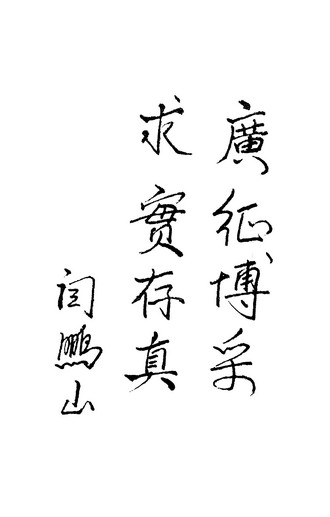 廣征博采
求實存真
闫鹏山